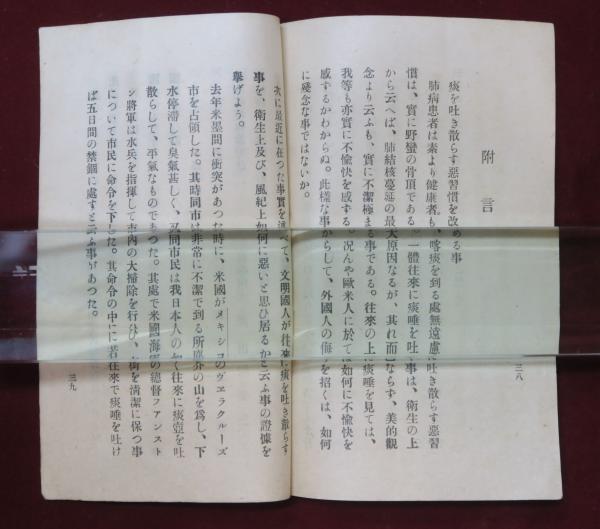 附言
痰を吐き散らす惡習慣を改める事
肺病患者は素より健康者も、喀痰を到る處無遠慮に吐き散らす惡習
慣は、實に野蠻の骨頂である。一體往來に痰唾を吐く事は、衛生の上
から云へば、肺結核蔓延の最大原因なるが、其れ而已ならず、美的觀
念より云ふも、實に不潔極まる事である。往來の上に痰唾を見ては、
我等も亦實に不愉快を感ずる。况んや歐米人に於ては如何に不愉快を
感ずるかわからぬ。此樣な事からして、外國人の侮りを招くは、如何
に殘念な事ではないか。
三八
次に最近に在つた事實を述べて、文明國人が往來に痰を吐き散らす
事を、衛生上及び、風紀上如何に惡いと思ひ居るかと云ふ事の證據を
擧げよう。
去年米墨間に衝突があつた時に、米國がメキシコのヴエラクルーズ
市を占領した。其時同市は非常に不潔で到る所塵芥の山を爲し、下
水停滯して臭氣甚しく、又同市民は我日本人の如く往來に痰壺を吐
散らして、平氣なものであつた。其處で米國海軍の總督フアンスト
ン將軍は水兵を指揮して市内の大掃除を行ひ、街を清潔に保つ事
について市民に命令を下した。其命令の中にに若往來で痰唾を吐け
ば五日間の禁錮に處すと云ふ事があつた。
三九